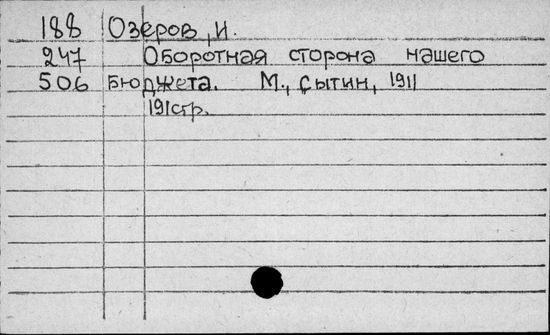 188 Озеров, И.
247 Оборотная сторона нашего
506 Бюджета. М., Сытин, 1911
191стр.